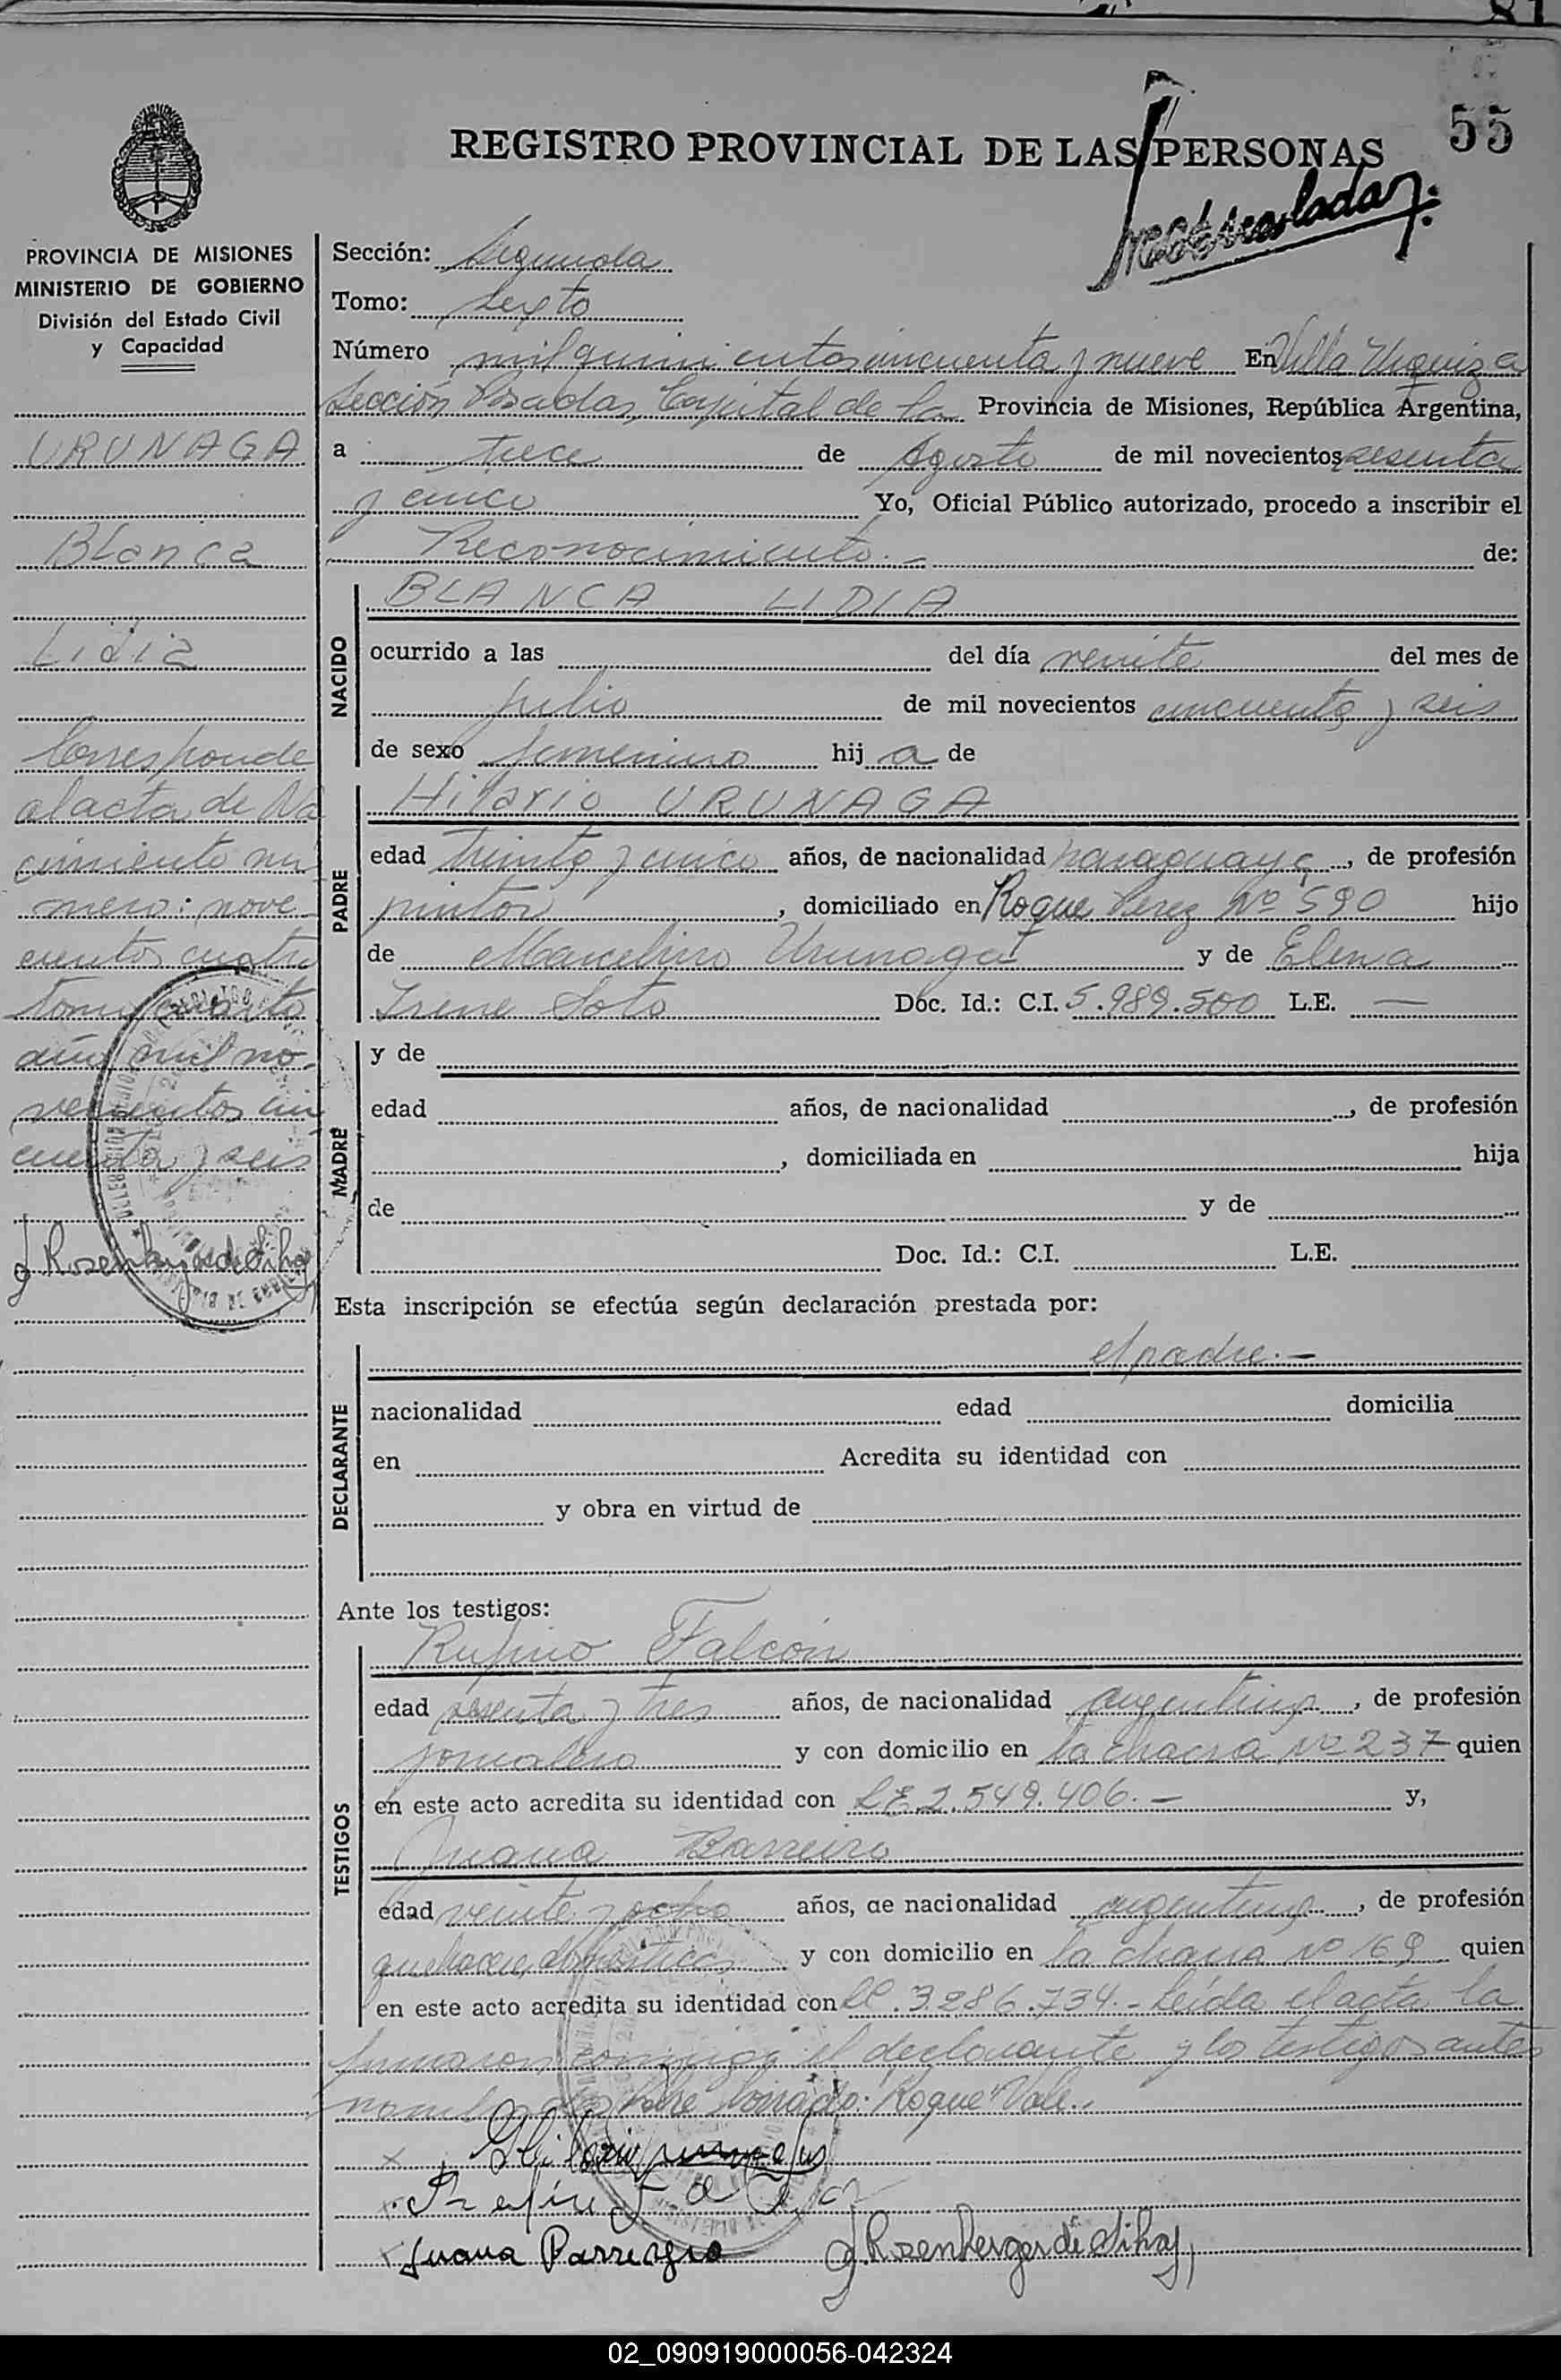 55
REGISTRO PROVINCIAL DE LAS PERSONAS
PROVINCIA DE MISIONES
MINISTERIO DE GOBIERNO
División del Estado Civil
y Capacidad
URUNAGA
Blanca
Lidia
Corresponde
al acta de Na
cimiento nú
mero: nove
cientos cuatro
tomo cuarto
año mil no-
vecientos cin
cuenta y seis
Sección: Segunda
Tomo: Sexto
Número mil quinientos cincuenta y nueve En Villa Urquiza
Sección Posadas, Capital de la Provincia de Misiones, República Argentina,
a trece de Agosto de mil novecientos sesenta
y cinco Yo, Oficial Público autorizado, procedo a inscribir el
Reconocimiento.- de:
NACIDO
BLANCA LIDIA
ocurrido a las del día veinte del mes de
julio de mil novecientos cincuenta y seis
de sexo femenino hij a de
PADRE
Hilario URUNAGA
edad treinta y cinco años, de nacionalidad paraguaya, de profesión
pintor, domiciliado en Roque Perez Nº 590 hijo
de Marcelino Urunaga y de Elena
Irene Soto Doc. Id.: C.I. 5.989.500 L.E. —
MADRE
y de
edad años, de nacionalidad , de profesión
, domiciliada en hija
de y de
Doc. Id.: C.I. L.E.
Esta inscripción se efectúa según declaración prestada por:
DECLARANTE
el padre.-
nacionalidad edad domicilia
en Acredita su identidad con
y obra en virtud de
Ante los testigos:
TESTIGOS
Rufino Falcón
edad sesenta y tres años, de nacionalidad argentina, de profesión
jornalero y con domicilio en la chacra Nº 237 quien
en este acto acredita su identidad con LE 2.549.406.- y,
Juana Barreiro
edad veinte y ocho años, de nacionalidad argentina, de profesión
quehacer doméstico y con domicilio en la chacra Nº 169 quien
en este acto acredita su identidad con LC. 3286.734.- Leída el acta la
firmaron conmigo el declarante y los testigos antes
nombrados sobre borrado: "Roque" Vale.-
Juana Parreyro J. Rosenberger de Sihay
02_090919000056-042324